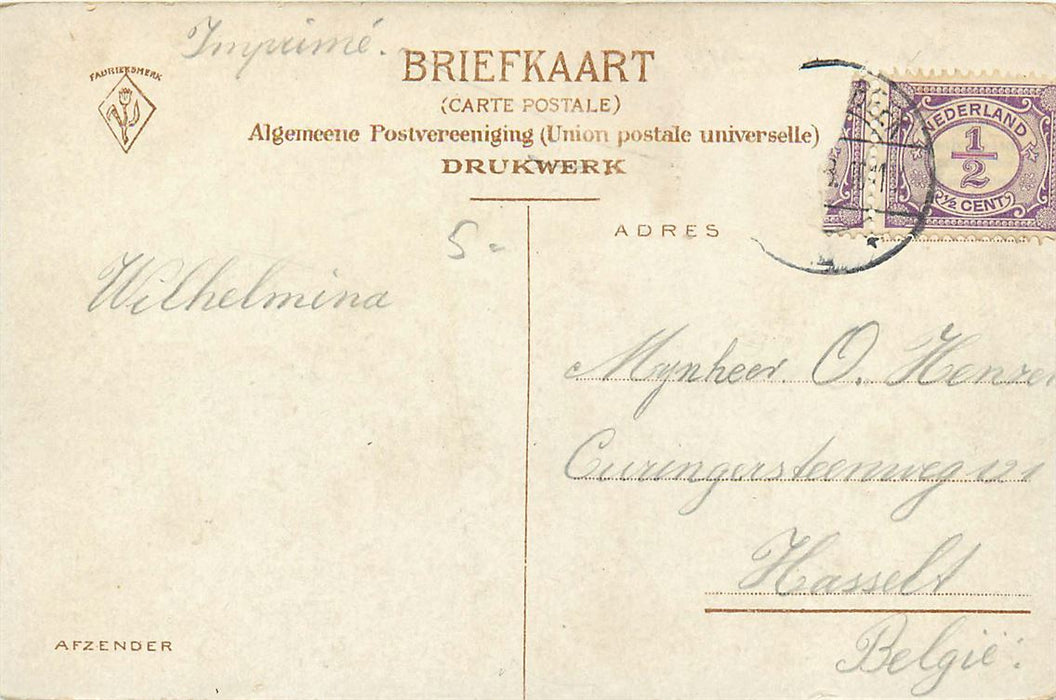 Imprimé.
FABRIEKSMERK
BRIEFKAART
(CARTE POSTALE)
Algemeene Postvereeniging (Union postale universelle)
DRUKWERK
NEDERLAND
1/2
½ CENT
5-
ADRES
Wilhelmina
Mynheer O. Henzen
Curingersteenweg 121
Hasselt
België.
AFZENDER